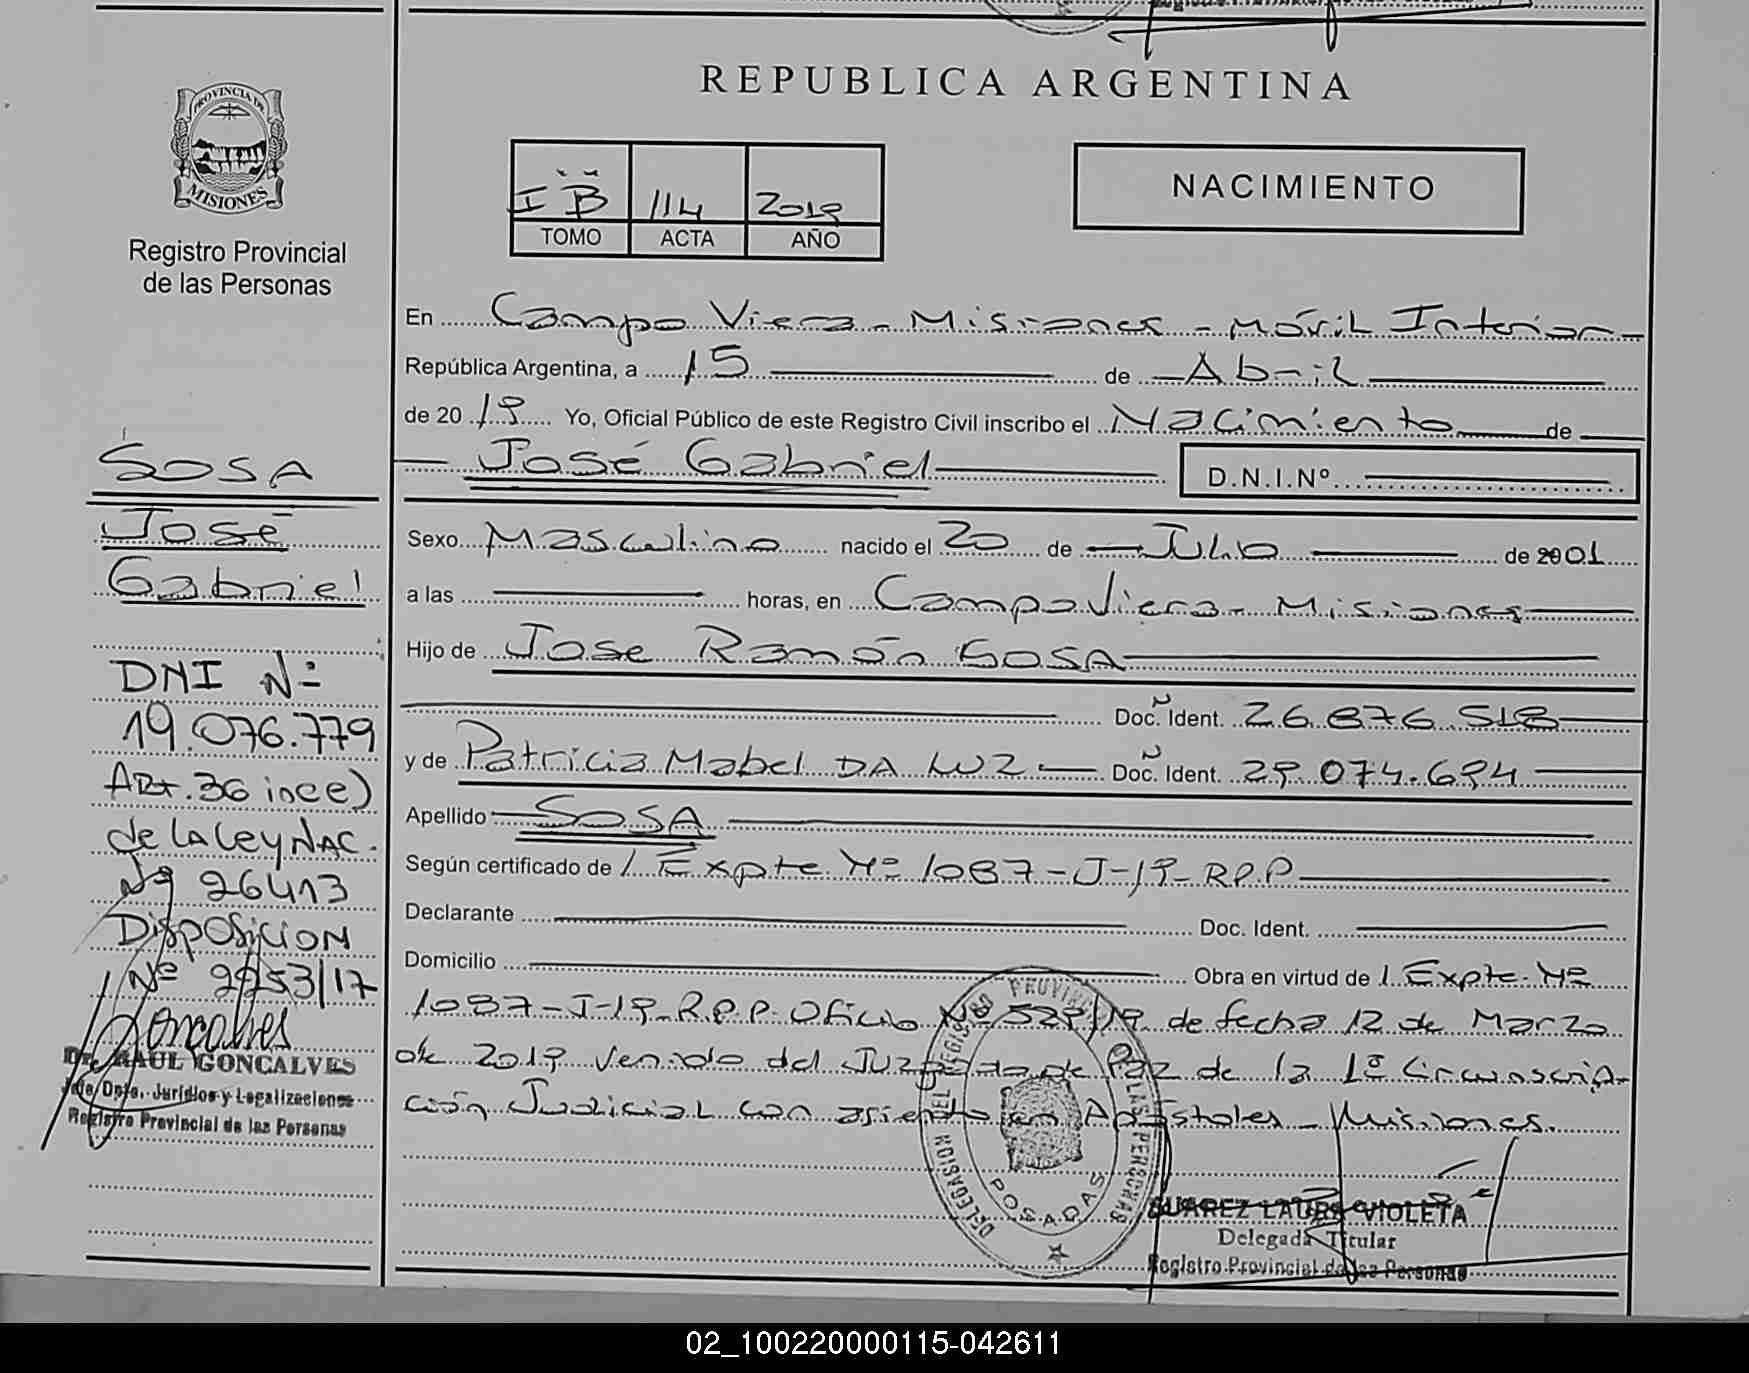 REPUBLICA ARGENTINA
PROVINCIA DE
MISIONES
Registro Provincial
de las Personas
I B 114 2019
TOMO ACTA AÑO
NACIMIENTO
En Campo Viera - Misiones - Móvil Interior
República Argentina, a 15 de Abril
de 2019 Yo, Oficial Público de este Registro Civil inscribo el Nacimiento de
José Gabriel D.N.I.Nº
Sexo Masculino nacido el 20 de Julio de 2001
a las horas, en Campo Viera - Misiones
Hijo de Jose Ramón SOSA
Doc. Ident. 26.876.518
y de Patricia Mabel DA LUZ Doc. Ident. 29.074.694
Apellido SOSA
Según certificado de / Expte. Nº 1087-J-19-R.P.P
Declarante Doc. Ident.
Domicilio Obra en virtud de / Expte. Nº
1087-J-19-R.P.P. Oficio Nº 529/19 de fecha 12 de Marzo
de 2019 Venido del Juzgado de Paz de la 1º Circunscrip-
ción Judicial con asiento en Apóstoles - Misiones.
SOSA
José
Gabriel
DNI Nº
19.076.779
Art. 36 inc e)
de la Ley NAC.
Nº 26413
Disposicion
Nº 2253/17
Goncalves
Dr. RAUL GONCALVES
Jefe Dpto. Jurídico y Legalizaciones
Registro Provincial de las Personas
DELEGACION DEL REGISTRO PROVINCIAL DE LAS PERSONAS
POSADAS
SUAREZ LAURA VIOLETA
Delegada Titular
Registro Provincial de las Personas
02_100220000115-042611